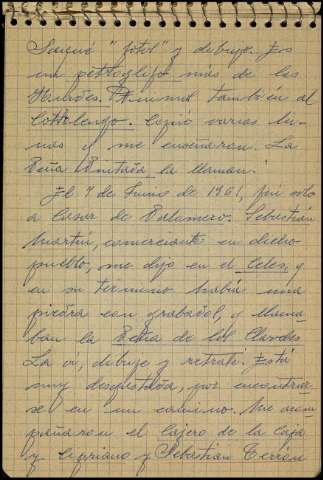 Saqué "fotos" y dibujos. Es
un petroglifo más de las
Hurdes. Vinimos también al
Cottolengo. Copió varias le-
nas y me enseñaron. La
Peña Pintada la llaman.
El 7 de Junio de 1961, fui solo
a Casar de Palomero. Sebastián
Martín, comerciante en dicho
pueblo, me dijo en el Celes, q
en su termino había una
piedra con grabados, y llama-
ban la Peña de los Clavos.
La vi, dibuje y retraté. Está
muy desgastada, por encontrar-
se en un camino. Me acom-
pañaron el Cajero de la Caja
y Cipriano y Sebastián Terrón